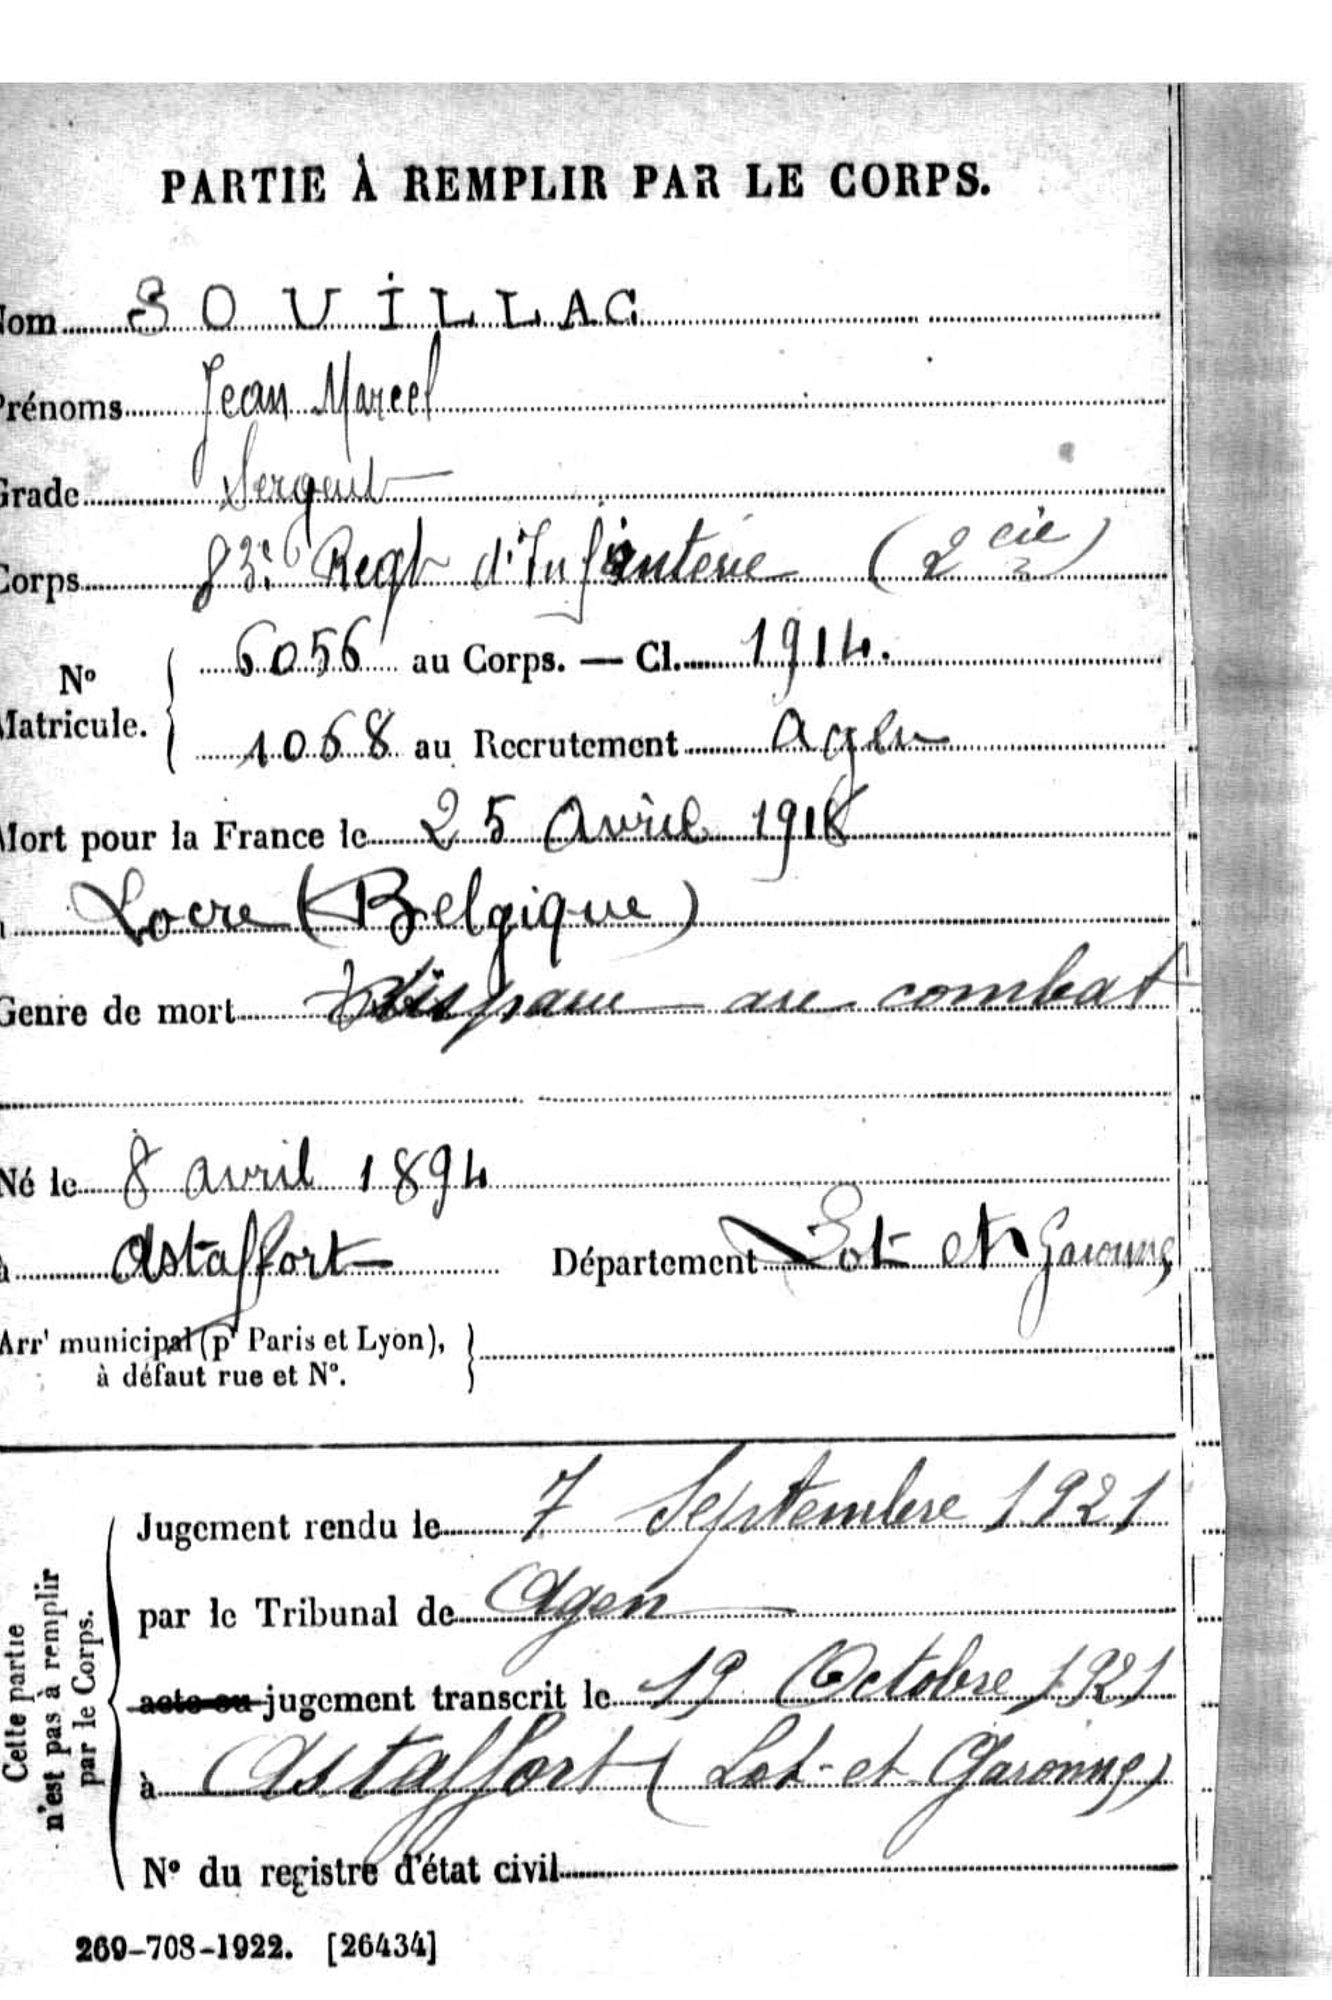 PARTIE À REMPLIR PAR LE CORPS.
Nom SOUILLAC
Prénoms Jean Marcel
Grade Sergent
Corps 83e Regt d'Infanterie (2 cie)
N° Matricule.
6056 au Corps. — Cl. 1914.
1068 au Recrutement Agen
Mort pour la France le 25 Avril 1918
à Locre (Belgique)
Genre de mort Disparu au combat
Né le 8 avril 1894
à Astaffort Département Lot et Garonne
Arrt municipal (pr Paris et Lyon),
à défaut rue et N°.
Cette partie
n'est pas à remplir
par le Corps.
Jugement rendu le 7 Septembre 1921
par le Tribunal de Agen
acte ou jugement transcrit le 19 Octobre 1921
à Astaffort (Lot-et Garonne)
N° du registre d'état civil
269-708-1922. [26434]